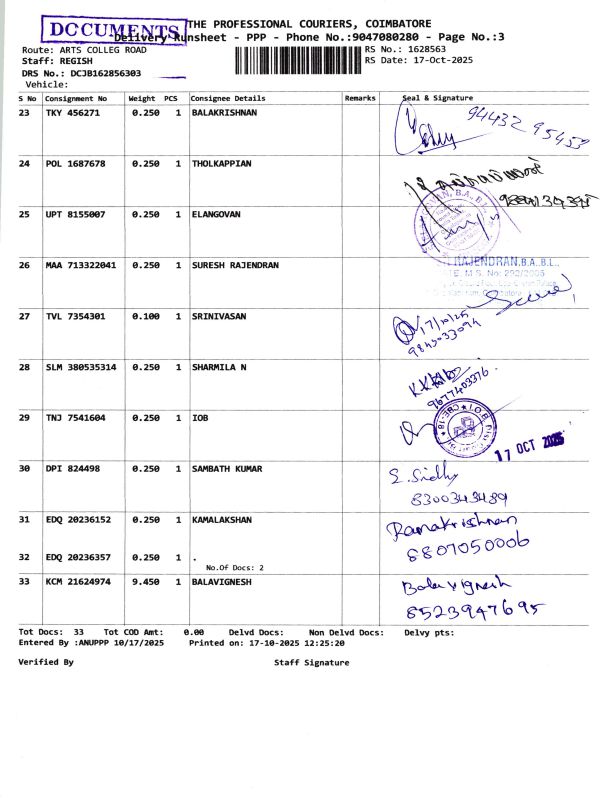 DOCUMENTS
THE PROFESSIONAL COURIERS, COIMBATORE
Delivery Runsheet - PPP - Phone No.:9047080280 - Page No.:3
Route: ARTS COLLEG ROAD
RS No.: 1628563
Staff: REGISH
RS Date: 17-Oct-2025
DRS No.: DCJB162856303
Vehicle:
S No Consignment No Weight PCS Consignee Details Remarks Seal & Signature
23 TKY 456271 0.250 1 BALAKRISHNAN 94432 95453
24 POL 1687678 0.250 1 THOLKAPPIAN
25 UPT 8155007 0.250 1 ELANGOVAN
26 MAA 713322041 0.250 1 SURESH RAJENDRAN
RAJENDRAN,B.A.,B.L.,
M.S. No: 292/2005
27 TVL 7354301 0.100 1 SRINIVASAN
17/10/25
9843033074
28 SLM 380535314 0.250 1 SHARMILA N
9677403376
29 TNJ 7541604 0.250 1 IOB
17 OCT 2025
30 DPI 824498 0.250 1 SAMBATH KUMAR
8300343489
31 EDQ 20236152 0.250 1 KAMALAKSHAN
Ramakrishnan
8807050006
32 EDQ 20236357 0.250 1 .
No.Of Docs: 2
33 KCM 21624974 9.450 1 BALAVIGNESH
Balavignesh
8523947695
Tot Docs: 33 Tot COD Amt: 0.00 Delvd Docs: Non Delvd Docs: Delvy pts:
Entered By :ANUPPP 10/17/2025 Printed on: 17-10-2025 12:25:20
Verified By Staff Signature